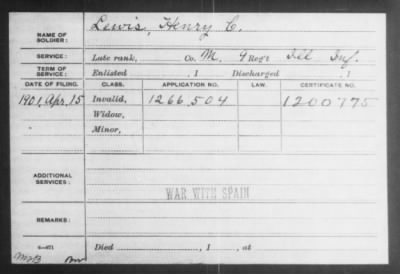 NAME OF SOLDIER: Lewis, Henry C.
SERVICE: Late rank, Co. M, 9 Reg't Ill Inf.
TERM OF SERVICE: Enlisted , 1 Discharged , 1
DATE OF FILING. CLASS. APPLICATION NO. LAW. CERTIFICATE NO.
1901 Apr. 15 Invalid, 1266,504 1200775
Widow,
Minor,
ADDITIONAL SERVICES:
WAR WITH SPAIN
REMARKS:
Died , 1 , at